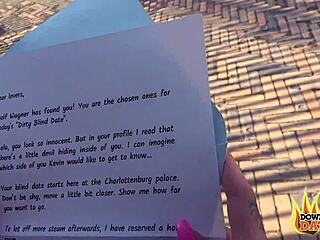 ear lovers,
alf Wagner has found you! You are the chosen ones for
oday's "Dirty Blind Date".
ola, you look so innocent. But in your profile I read that
here's a little devil hiding inside of you. I can imagine
which side of you Kevin would like to get to know...
Your blind date starts here at the Charlottenburg palace.
Don't be shy, move a little bit closer. Show me how far
you want to go.
To let off more steam afterwards, I have reserved a ho
DOW
DA